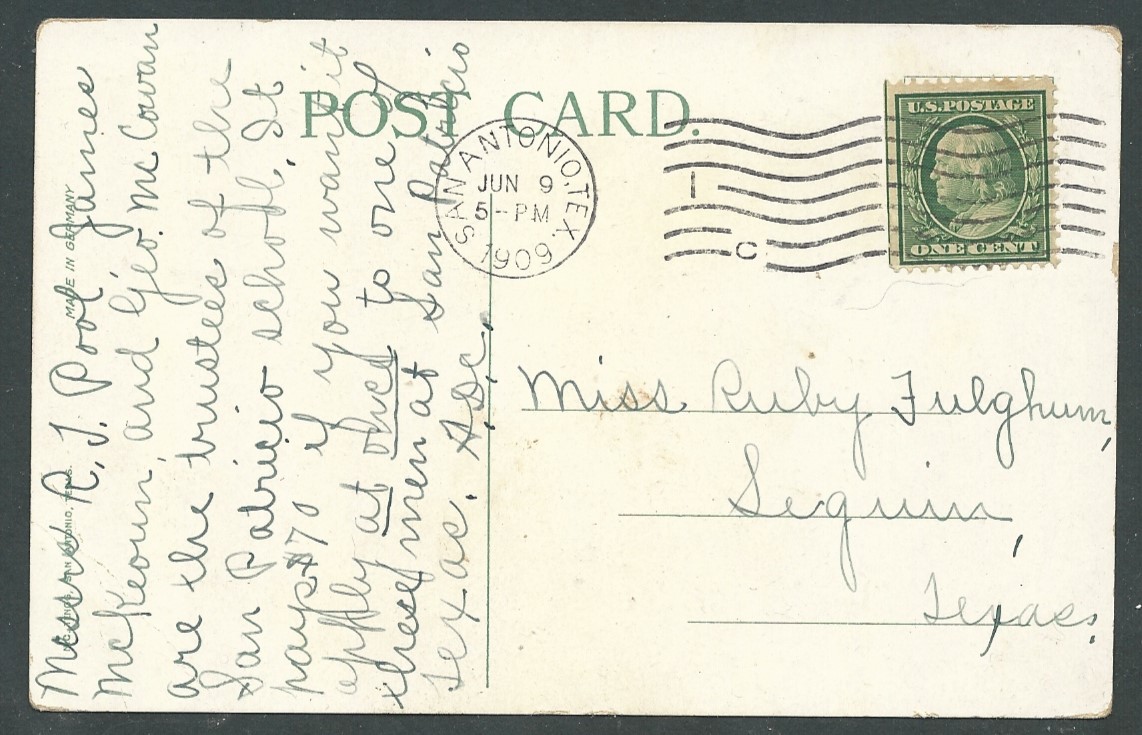 POST CARD.
U.S. POSTAGE
ONE CENT
SAN ANTONIO, TEX.
JUN 9
5-PM
1909
1
C
Messrs R. J. Pool James
McKeown, and Geo. McCowan
are the trustees of the
San Patricio school. It
pays $70 if you want it
apply at once to one of
these men at San Patricio
Texas.
MADE IN GERMANY
SAN ANTONIO, TEXAS.
Miss Ruby Fulghum,
Seguin,
Texas.